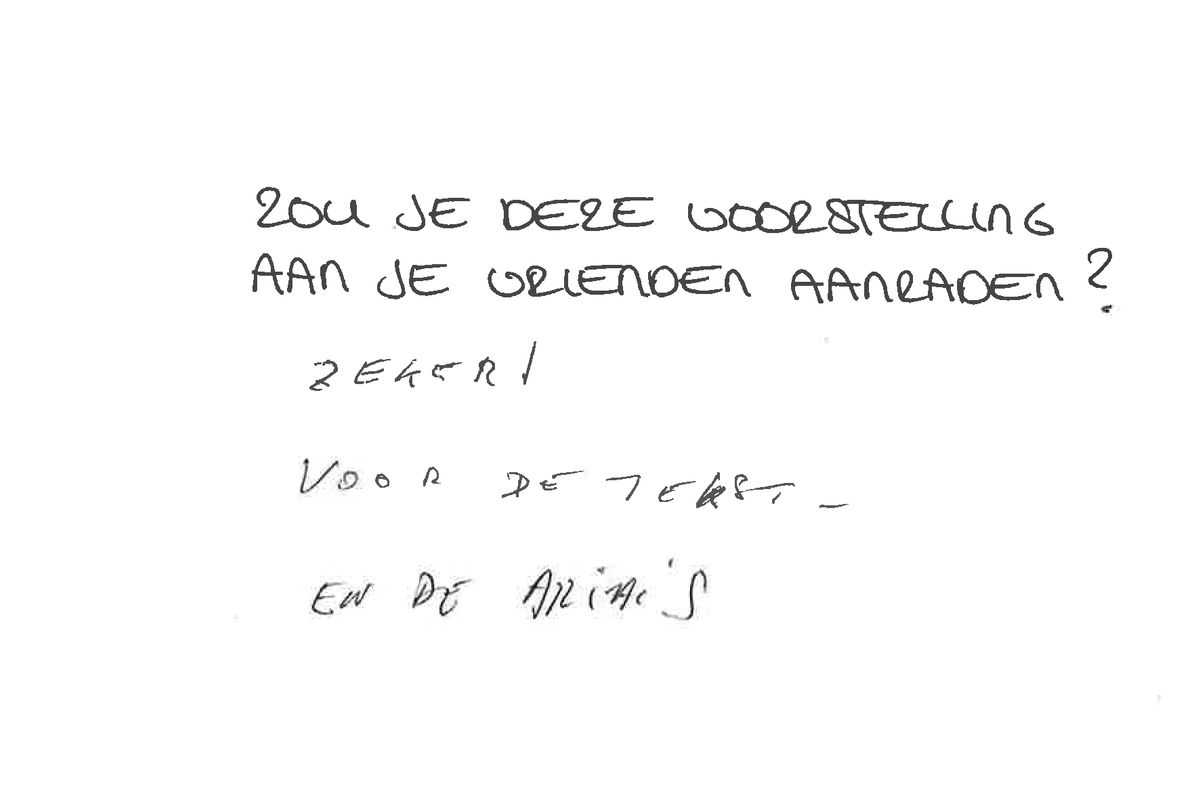 ZOU JE DEZE VOORSTELLING
AAN JE VRIENDEN AANRADEN?
ZEKER!
VOOR DE TEKST -
EN DE ARIA'S